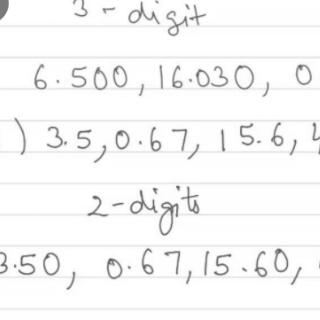 3 - digit
6.500, 16.030, 0
) 3.5, 0.67, 15.6, 4
2-digits
3.50, 0.67, 15.60,